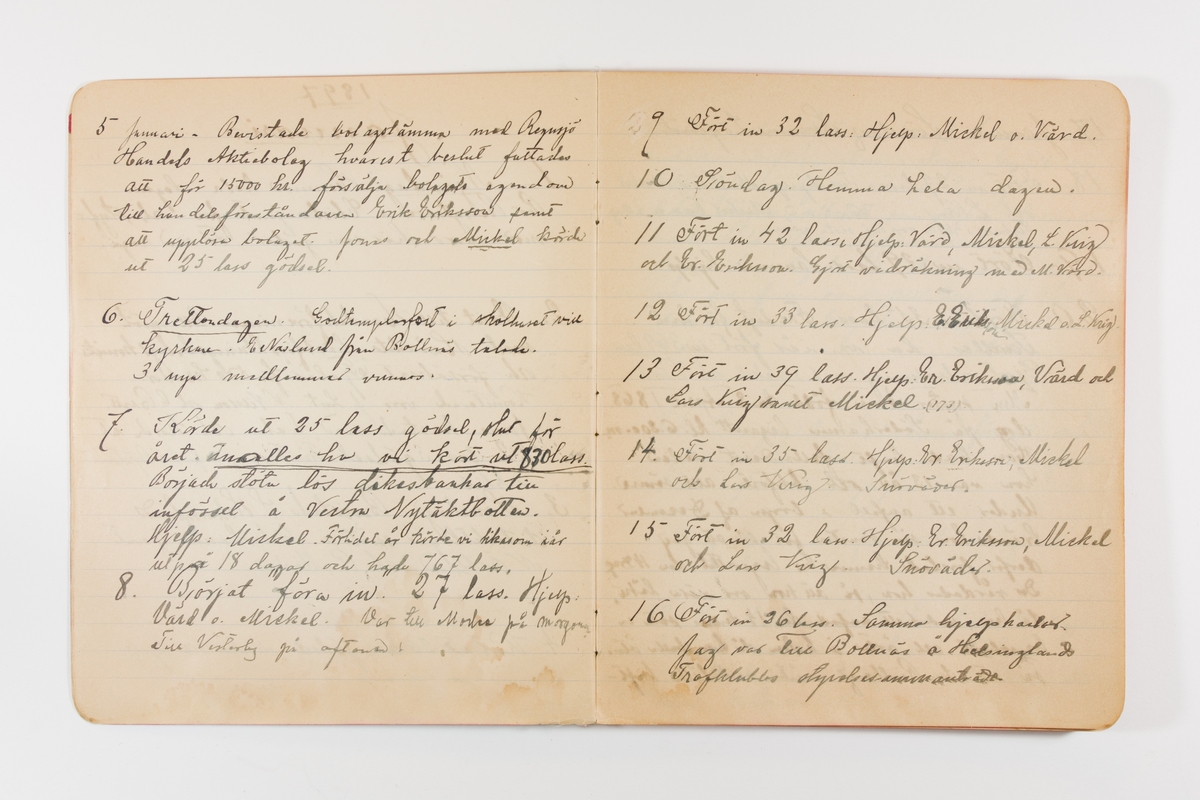 5 Januari - Bevistade bolagstämma med Rengsjö
Handels Aktiebolag hvarest beslut fattades
att för 15000 kr. försälja bolagets egendom
till handelsföreståndaren Erik Eriksson samt
att upplösa bolaget. Jonas och Mickel körde
ut 25 lass gödsel.
6. Trettondagen. Godtemplarfest i skolhuset vid
kyrkan. E Näslund från Bollnäs talade.
3 nya medlemmar vunnos.
7. Körde ut 25 lass gödsel, slut för
året. ha vi kört ut 830 lass.
Började stöta lös dikesbankar till
införsel å Vestra Nytäktbotten.
Hjelp: Mickel. Förlidet år körde vi likasom i år
ut på 18 dagar och hade 767 lass.
8. Börjat föra in. 27 lass. Hjelp:
Vård o. Mickel. Var till Modra på morgon.
Till Vesterby på aftonen.
9 Fört in 32 lass: Hjelp: Mickel o. Vård.
10 Söndag. Hemma hela dagen.
11 Fört in 42 lass, Hjelp: Vård, Mickel, L Krig
och Er. Eriksson. Gjort vidräkning med M. Vård.
12 Fört in 33 lass. Hjelp: E. Erik, Mickel o. L. Krig.
13 Fört in 39 lass. Hjelp: Er. Eriksson, Vård och
Lars Krig samt Mickel
14. Fört in 35 lass. Hjelp: Er. Eriksson, Mickel
och Lars Krig. Snöväder.
15 Fört in 32 lass. Hjelp: Er. Eriksson, Mickel
och Lars Krig. Snöväder.
16 Fört in 26 lass. Samma hjelpkarlar.
Jag var till Bollnäs å Helsinglands
Trafklubbs styrelsesammanträde